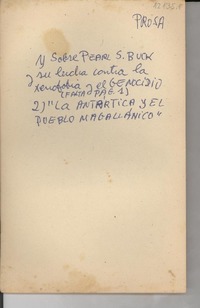 PROSA
1) Sobre PEARL S. BUCK
y su lucha contra la
xenofobia y el GENOCIDIO
(FALTA PÁG. 1)
2) "LA ANTARTICA Y EL
PUEBLO MAGALLÁNICO"